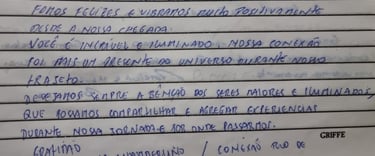 FOMOS FELIZES E VIBRAMOS MUITO POSITIVAMENTE
DESDE A NOSSA CHEGADA.
VOCÊ É INCRÍVEL E ILUMINADO. NOSSA CONEXÃO
FOI MAIS UM PRESENTE DO UNIVERSO DURANTE NOSSO
TRAJETO.
DESEJAMOS SEMPRE A BENÇÃO DOS SERES MAIORES E ILUMINADOS,
QUE POSSAMOS COMPARTILHAR E AGREGAR EXPERIENCIAS
DURANTE NOSSA JORNADA E POR ONDE PASSARMOS.
GRIFFE
GRATIDÃO
/ CONEXÃO RIO DE